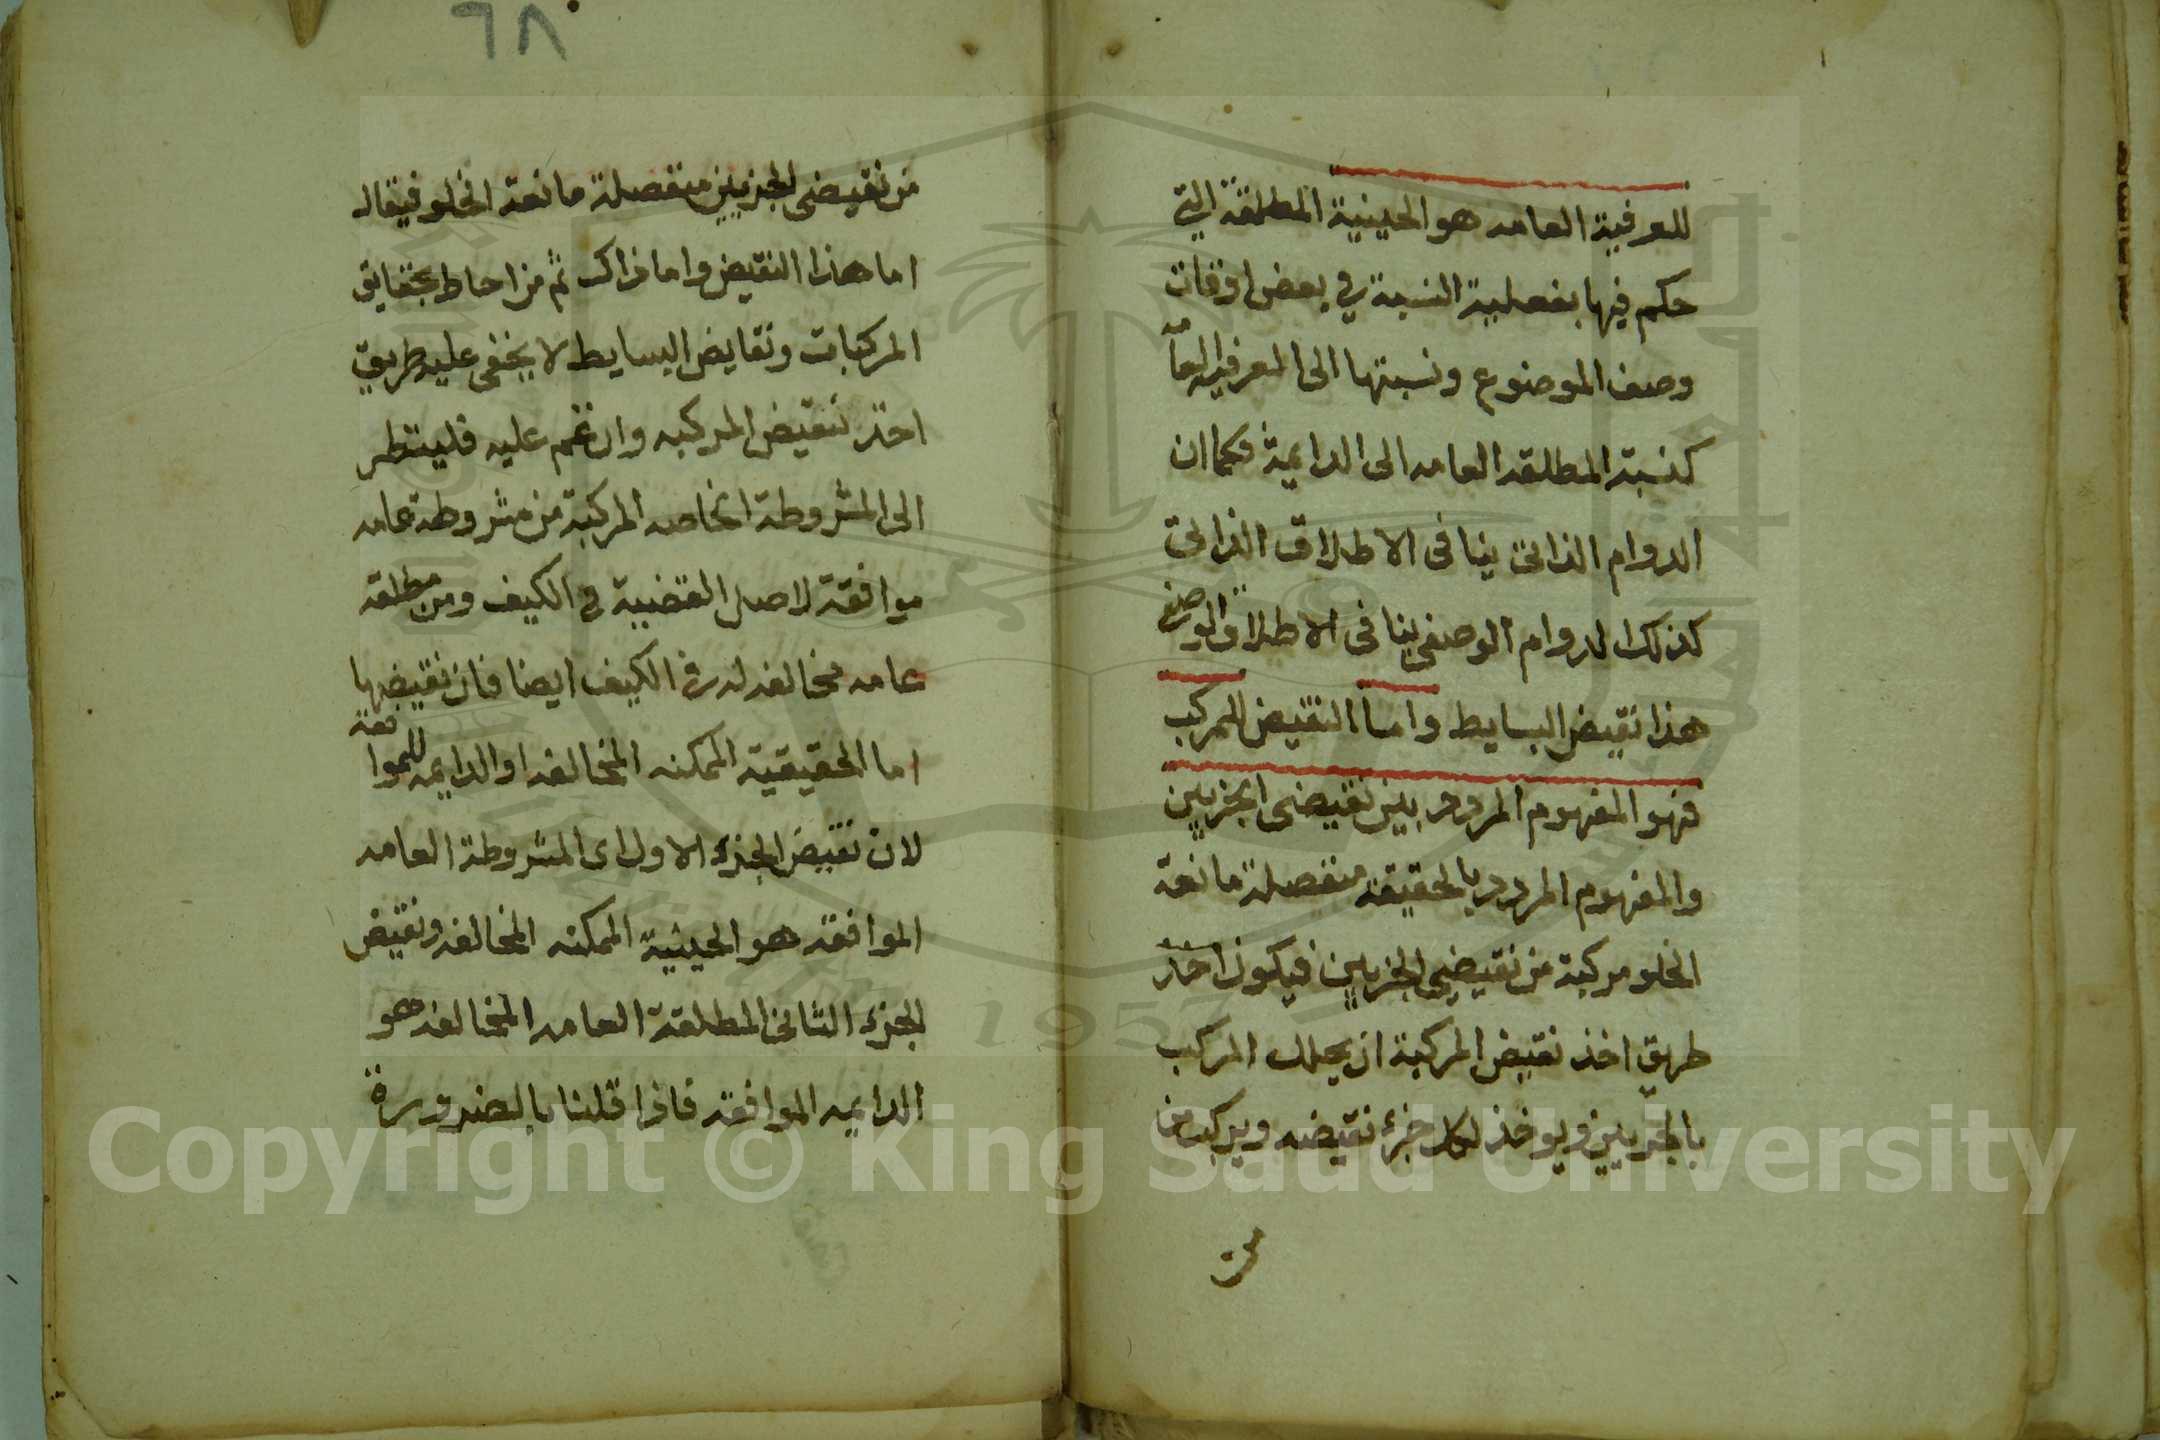 للعرفية العامه هو الحينية المطلقة التي
حكم فيها بفعلية النسبة في بعض اوقات
وصف الموضوع ونسبتها الى العرفيه العامه
كنسبة المطلقه العامه الى الدايمة فكما ان
الدوام الذاتى ينافى الاطلاق الذاتى
كذلك الدوام الوصفى ينافى الاطلاق الوصفى
هذا نقيض البسايط واما النقيض للمركب
فهو المفهوم المردد بين نقيضى الجزيين
والمفهوم المردد بالحقيقة منفصلة مانعة
الخلو مركبة من نقيضى الجزيين فيكون اخذ
طريق اخذ نقيض المركبة ان يحلل المركب
بالجزيين ويوخذ لكل جزء نقيضه ويركب من
من
٦٨
من نقيضى الجزيين منفصلة مانعة الخلو فيقال
اما هذا النقيض واما ذاك ثم من احاط بحقايق
المركبات ونقايض البسايط لا يخفى عليه طريق
اخذ نقيض المركبه وان غم عليه فلينظر
الى المشروطة الخاصه المركبة من مشروطة عامه
موافقة لاصل القضية في الكيف ومن مطلقة
عامه مخالفه له في الكيف ايضا فان نقيضها
اما الحقيقية الممكنه المخالفه او الدايمه الموافقة
لان نقيض الجزء الاول اى المشروطة العامه
الموافقة هو الحينية الممكنه المخالفه ونقيض
الجزء الثانى المطلقة العامه المخالفه هو
الدايمه الموافقة فاذا قلنا بالضرورة
Copyright © King Saud University
1957